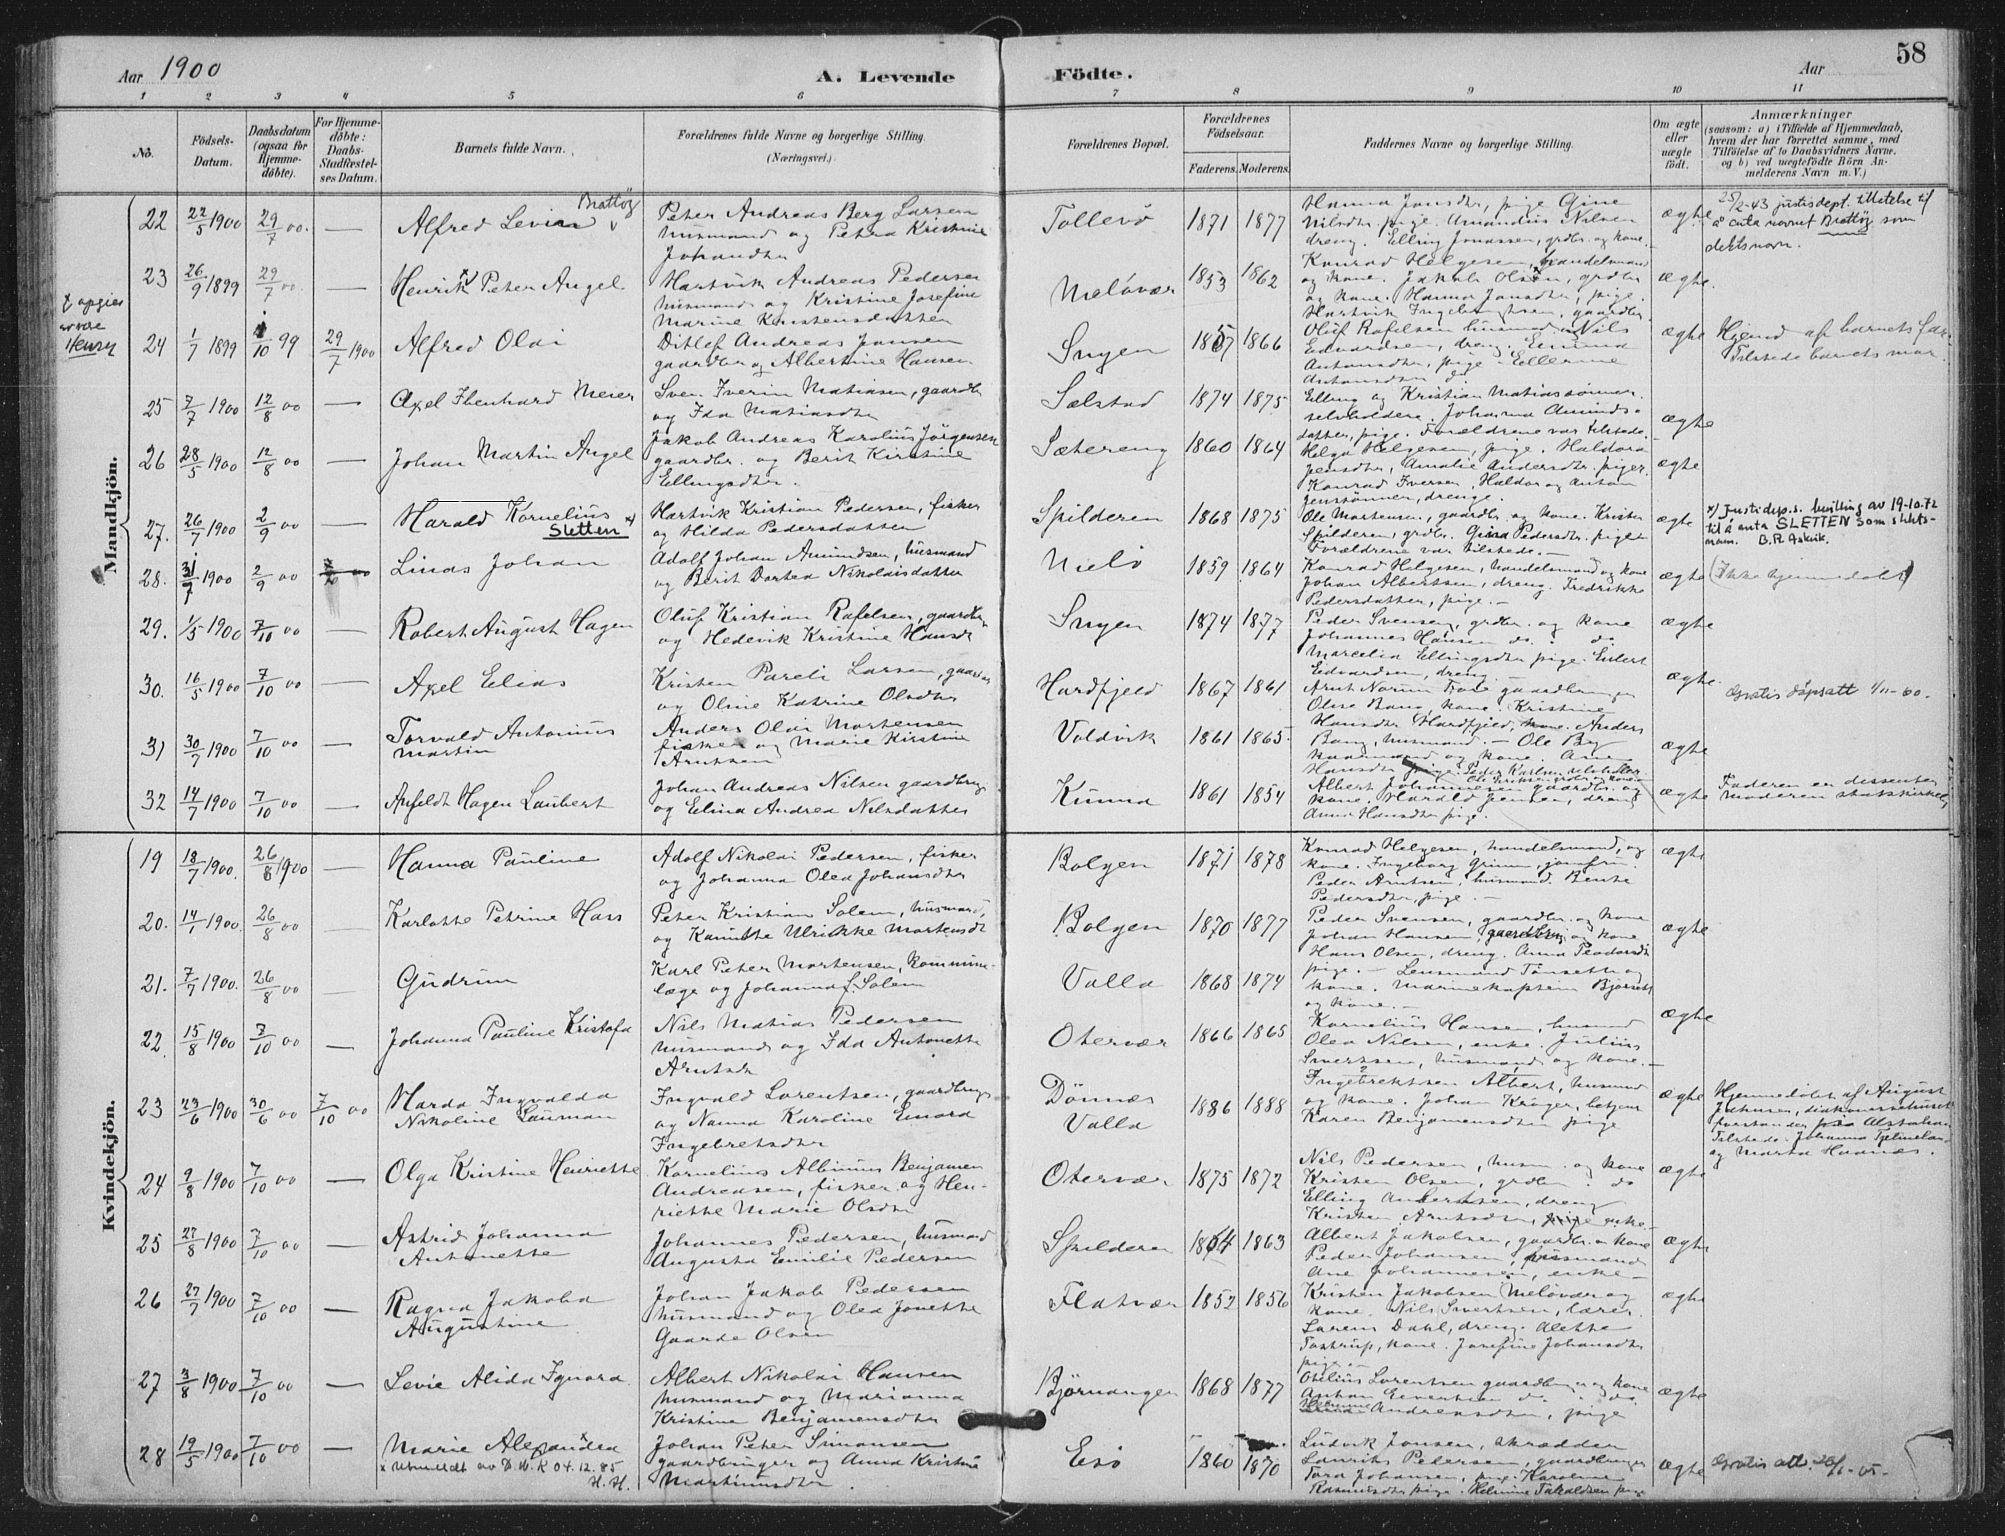 58
Aar 1900
A. Levende Födte.
Aar
1 2 3 4 5 6 7 8 9 10 11
No.
Födsels-Datum.
Daabsdatum (ogsaa for Hjemme-döbte).
For Hjemme-döbte: Daabs-Stadfæstel-ses Datum.
Barnets fulde Navn.
Forældrenes fulde Navne og borgerlige Stilling. (Næringsvei.)
Forældrenes Bopæl.
Forældrenes Födselsaar.
Faderens. Moderens.
Faddernes Navne og borgerlige Stilling.
Om ægte eller uægte födt.
Anmærkninger
(saasom: a) i Tilfælde af Hjemmedaab, hvem der har forrettet samme, med Tilföielse af to Daabsvidners Navne, og b) ved uegtefödte Börn An-melderens Navn m. V.)
Mandkjön.
22 22/5 1900 29/7 00. — Alfred Levian Brattøy
Peter Andreas Berg Larsen
husmand og Petra Kristine
Johansdtr
Tollevö 1871 1877
Hanna Jonsdtr, pige Gine
Nilsdtr pige. Amandus Nilsen
dreng. Elling Jonassen, grdbr. og kone.
ægte
25/2-43 justisdept. tillatelse til
å anta navnet Brattøy som
slektsnavn.
23 26/9 1899 29/7 00 — Henrik Peter Angel
Hartvik Andreas Pedersen
husmand og Kristine Josefine
Marine Kristensdatter
Meløvær 1853 1862
Konrad Helgesen, handelsmand
og kone. Jakob Olsen, grdbr
og kone. Hanna Jonsdtr, pige.
Hartvik Ingebrigtsen, gaardbr.
ægte.
24 1/7 1899 1/10 99 29/7 1900 Alfred Olai
Ditlef Andreas Jensen
gaardbr og Albertine Hansen
1857 1866
Oluf Rafelsen husmand Nils
Edvardsen, dreng.
Antonsdtr, pige - Ellerine
Antonsdtr do
ægte
Hjemd af barnets far.
Tilstede barnets mor.
25 7/7 1900 12/8 00 — Axel Ebenhard Meier
Sven Iverin Matiasen, gaardbr
og Ida Matiasdtr
Sælstad 1874 1875
Elling og Kristian Matiassönner.
selvholdere. Johanna Amunds-
datter, pige. Forældrene var tilstede.
ægte
26 28/5 1900 12/8 00 — Johan Martin Angel
Jakob Andreas Karolius Jörgensen
gaardbr. og Berit Kirstine
Ellingsdtr.
Sætereng 1860 1864
Helga Helgesen, pige. Haldora
Jensdtr, Amalie Andersdtr. piger.
Konrad Iversen, Haldor og Anton
Jenssönner, drenge.
ægte
27. 26/7 1900 2/9 00 — Harald Kornelius
Sletten
Hartvik Kristian Pedersen, fisker
og Hilda Pedersdatter
Spilderen 1868 1875
Ole Mortensen, gaardbr og kone. Kristen
Spilderen, grdbr. Gina Pedersdtr. pige
Forældrene var tilstede. —
ægte
x) Justisdep.s bevilling av 19-10.72
til å anta SLETTEN som slekts-
navn. B.R. Askvik.
28. 31/7 1900 2/9 00 Linas Johan
Adolf Johan Amundsen, husmand
og Berit Dortea Nikolaisdatter
1859 1864
Konrad Helgesen, handelsmand og kone
Johan Albertsen, dreng. Fredrikke
Pedersdatter, pige. —
ægte
(Ikke hjemmedøbt)
29. 1/5 1900 7/10 00 — Robert August Hagen
Oluf Kristian Rafelsen, gaardbr
og Hedevik Kristine Hansdtr
1874 1877
Peder Svensen, grdbr. og kone
Johannes Hansen do. do
Marcelia Ellingsdtr pige.
Edvardsen, dreng —
ægte
30. 16/5 1900 7/10 00 — Axel Elias
Kristen Pareli Larsen, gaardbr
og Oline Katrine Olsdtr
Hardfjeld 1867 1861
Olise Bang, kone. Kristine
Hansdtr Hardfjeld, kone. Anders
ægte.
Gratis dåpsatt 4/11-60.
31 30/7 1900 7/10 00 — Torvald Antonius
Martin
Anders Olai Mortensen
fisker og Marie Kirstine
Arntsen
Valdvik 1861 1865
Bang, husmand. — Ole By
husmand og kone. Ane
Hansdtr pige. Peder Karlsen selvholder
ægte
32 14/7 1900 7/10 00 — Anfeldt Hagen Laubert
Johan Andreas Nilsen gaardbrug
og Elina Andrea Nilsdatter
Kunna 1861 1854
Albert Johannesen gaardbr. og
kone. Harald Jensen, dreng
Anna Hansdtr pige.
ægte
Faderen er dissenter
Moderen statskirkel.
Kvindekjön.
19 18/7 1900. 26/8 1900 — Hanna Pauline
Adolf Nikolai Pedersen, fisker
og Johanna Olea Johansdtr
Bolgen 1871 1878
Konrad Helgesen, handelsmand, og
kone. Ingeborg Grimm, jomfru.
Peder Arntsen, husmand. Bente
Pedersdtr, pige. —
ægte
20. 14/1 1900. 26/8 00 — Karlotte Petrine Hass
Peter Kristian Solem, husmand,
og Kanutte Ulrikke Mortensdtr
Bolgen 1870 1877
Peder Svensen, gaardbr. og kone
Johan Hansen, gaardbrug og kone
Hans Olsen, dreng. Anna Teodorsdtr
pige. —
ægte
21. 7/7 1900. 26/8 00 — Gudrun
Karl Peter Mortensen, kommune-
læge og Johanna f. Solem
Valla 1868 1874
Lensmand Tönsette og
kone. Marinekaptein Bjørseth
og kone. —
ægte
22. 15/8 1900 7/10 00 — Johanna Pauline Kristofa
Nils Matias Pedersen
husmand og Ida Antonette
Arntsdtr
Otervær 1866 1865
Kornelius Hansen, husmand
Olea Nilsen, enke. Julius
Sivertsen, husmand, og kone. —
23 23/6 1900 30/6 00 7/10 00 Marda Ingvalda
Nikoline Lauman
Ingvald Lorentsen, gaardbruger
og Nanna Karoline Emora
Ingebretsdtr
Dönnæs
Valla
1886 1888
Ingebrektsen Albert, husmand
og kone. Johan Kröger, betjent
Karen Benjamensdtr pige
ægte
Hjemmedøbt af August
Johnsen, diakonissehuset
forstander Alstahaug
Tilstede: Johanna Tjelmeland
og Marta Haanæs.
24 9/8 1900 7/10 00 — Olga Kristine Henriette
Kornelius Albinus Benjamen
Andreasen, fisker og Hen-
riette Marie Olsdtr
Otervær 1875 1872
Nils Pedersen, husm. og kone
Kristen Olsen, grdbr. do
Elling Andersen, dreng
Kristen Arntsdtr, enke —
ægte
25 27/8 1900 7/10 00 — Astrid Johanna
Antonette
Johannes Pedersen, husmand
Augusta Emilie Pedersen
Spilderen 1864 1863
Albert Jakobsen, gaardbr. og kone
Peder Johansen, husmand
Ane Johannesen, enke —
ægte
26 27/7 1900 7/10 00 — Ragna Jakoba
Augustine
Johan Jakob Pedersen
husmand og Olea Jonette
Gaarde Olsen
Flatvær 1852 1856
Kristen Jakobsen Meløvær og
kone. Nils Sivertsen, lærer
Lorens Dahl, dreng. Alette
Tostrup, kone. Josefine Johansdtr
pige —
ægte
27 3/8 1900 7/10 00 — Levie Alida Ignora
Albert Nikolai Hansen
husmand og Marianna
Kristine Benjamensdtr
Bjørnangen 1868 1877
Otelius Lorentsen gaardbruger og kone
Anton Sivertsen do do
Andreasdtr, pige
ægte
28 19/5 1900 7/10 00 — Marie Alexandra
x Utmeldt av D.N.K 04.12.85
H.H.
Johan Peter Simonsen
gaardbruger og Anna Kristine
Martinusdtr.
Esö 1860 1870
Ludvik Jonsen, skrædder
Laurits Pedersen, gaardbruger
Tora Johansen, pige. Karoline
Rasmusdtr pige. Helmine Jakobsen pige
ægte
Gratis att.